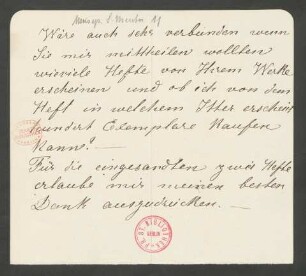 Wäre auch sehr verbunden wenn
Sie mir mittheilen wollten
wieviele Hefte von Ihrem Werke
erscheinen und ob ich von dem
Heft in welchem Itter erscheint
hundert Exemplare kaufen
kann?
Für die eingesandten zwei Hefte
erlaube mir meinen besten
Dank auszudrücken.—
BERLIN